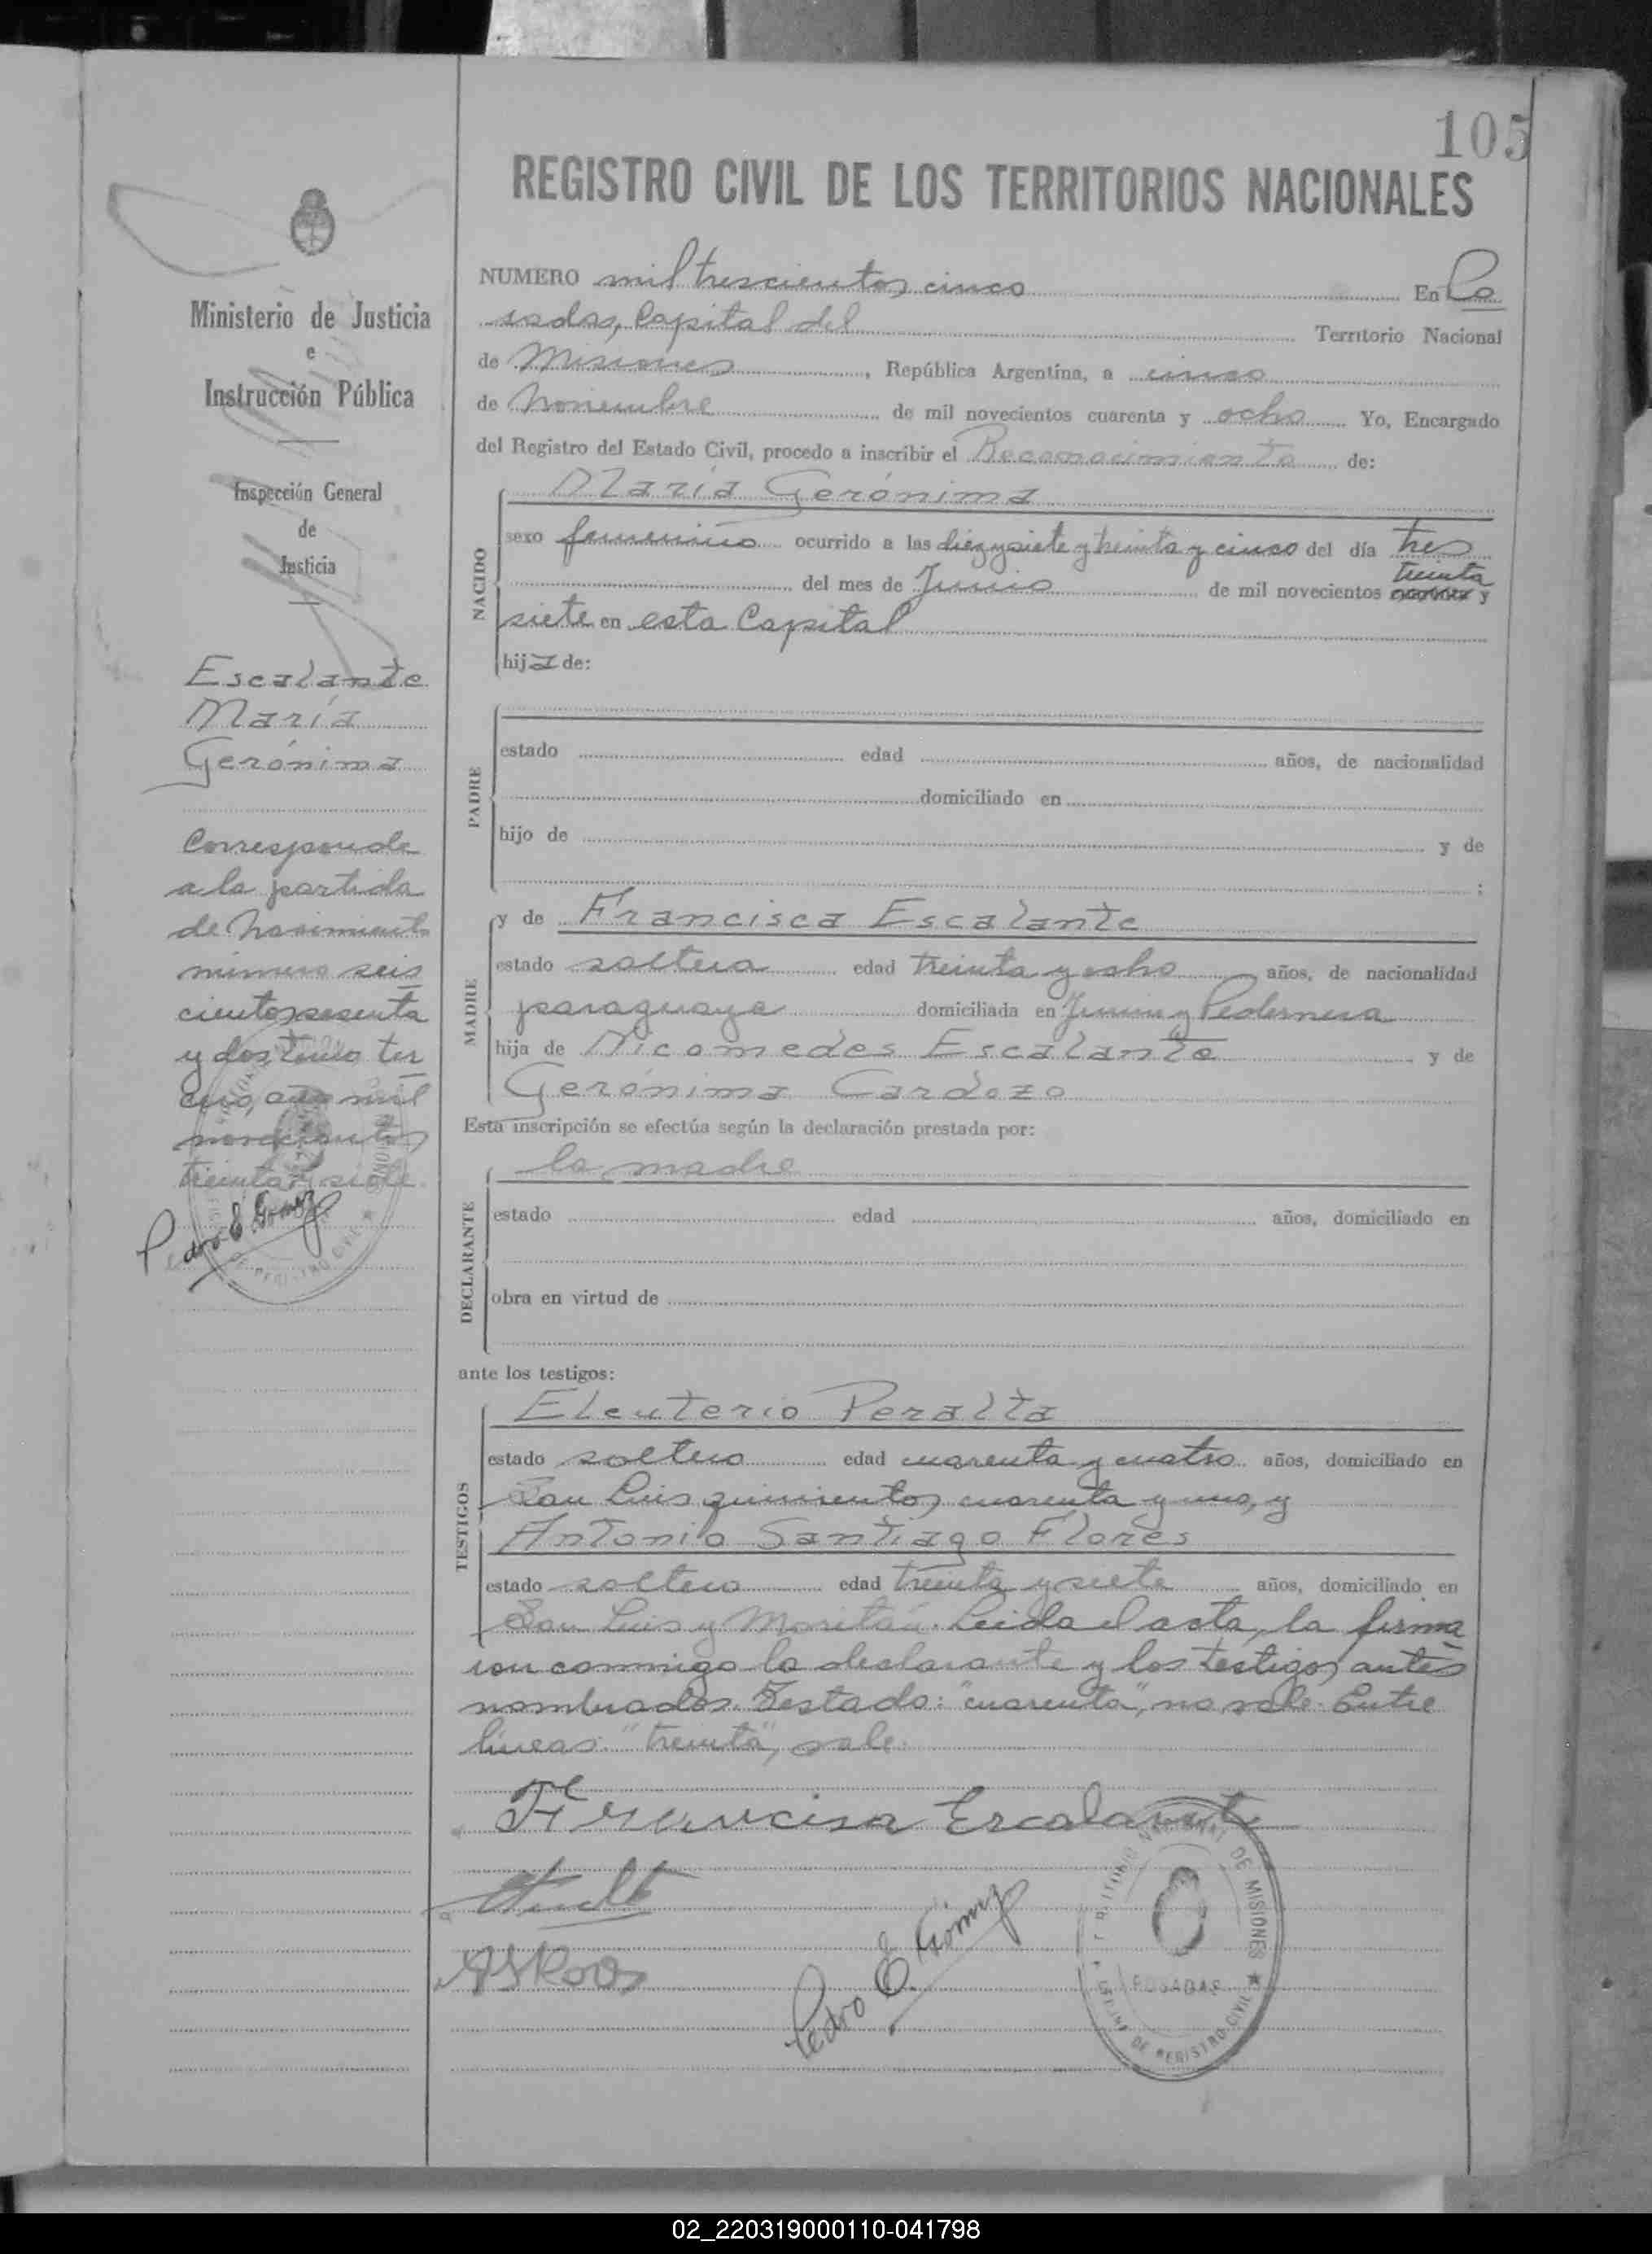 105
REGISTRO CIVIL DE LOS TERRITORIOS NACIONALES
Ministerio de Justicia
e
Instrucción Pública
Inspección General
de
Justicia
Escalante
María
Gerónima
Corresponde
a la partida
de nacimiento
número seis
cientos sesenta
y dos tomo ter
cero, año mil
novecientos
treinta y siete
Pedro E. Gómez
NUMERO mil trescientos cinco En Po
sadas, Capital del Territorio Nacional
de Misiones, República Argentina, a cinco
de Noviembre de mil novecientos cuarenta y ocho Yo, Encargado
del Registro del Estado Civil, procedo a inscribir el Reconocimiento de:
María Gerónima
NACIDO
sexo femenino ocurrido a las diez y siete y treinta y cinco del día tres
del mes de Junio de mil novecientos treinta y
siete en esta Capital
hija de:
PADRE
estado edad años, de nacionalidad
domiciliado en
hijo de y de
;
MADRE
y de Francisca Escalante
estado soltera edad treinta y ocho años, de nacionalidad
paraguaya domiciliada en Junín y Pedernera
hija de Nicomedes Escalante y de
Gerónima Cardozo
Esta inscripción se efectúa según la declaración prestada por:
la madre
DECLARANTE
estado edad años, domiciliado en
obra en virtud de
ante los testigos:
TESTIGOS
Eleuterio Peralta
estado soltero edad cuarenta y cuatro años, domiciliado en
San Luis quinientos cuarenta y uno, y
Antonio Santiago Flores
estado soltero edad treinta y siete años, domiciliado en
San Luis y Moritán. Leida el acta, la firma
ron conmigo la declarante y los testigos antes
nombrados. Testado: "cuarenta", no vale. Entre
líneas: "treinta", vale.
Francisca Escalante
Pedro E. Gómez
TERRITORIO NACIONAL DE MISIONES
POSADAS
DE REGISTRO CIVIL
02_220319000110-041798